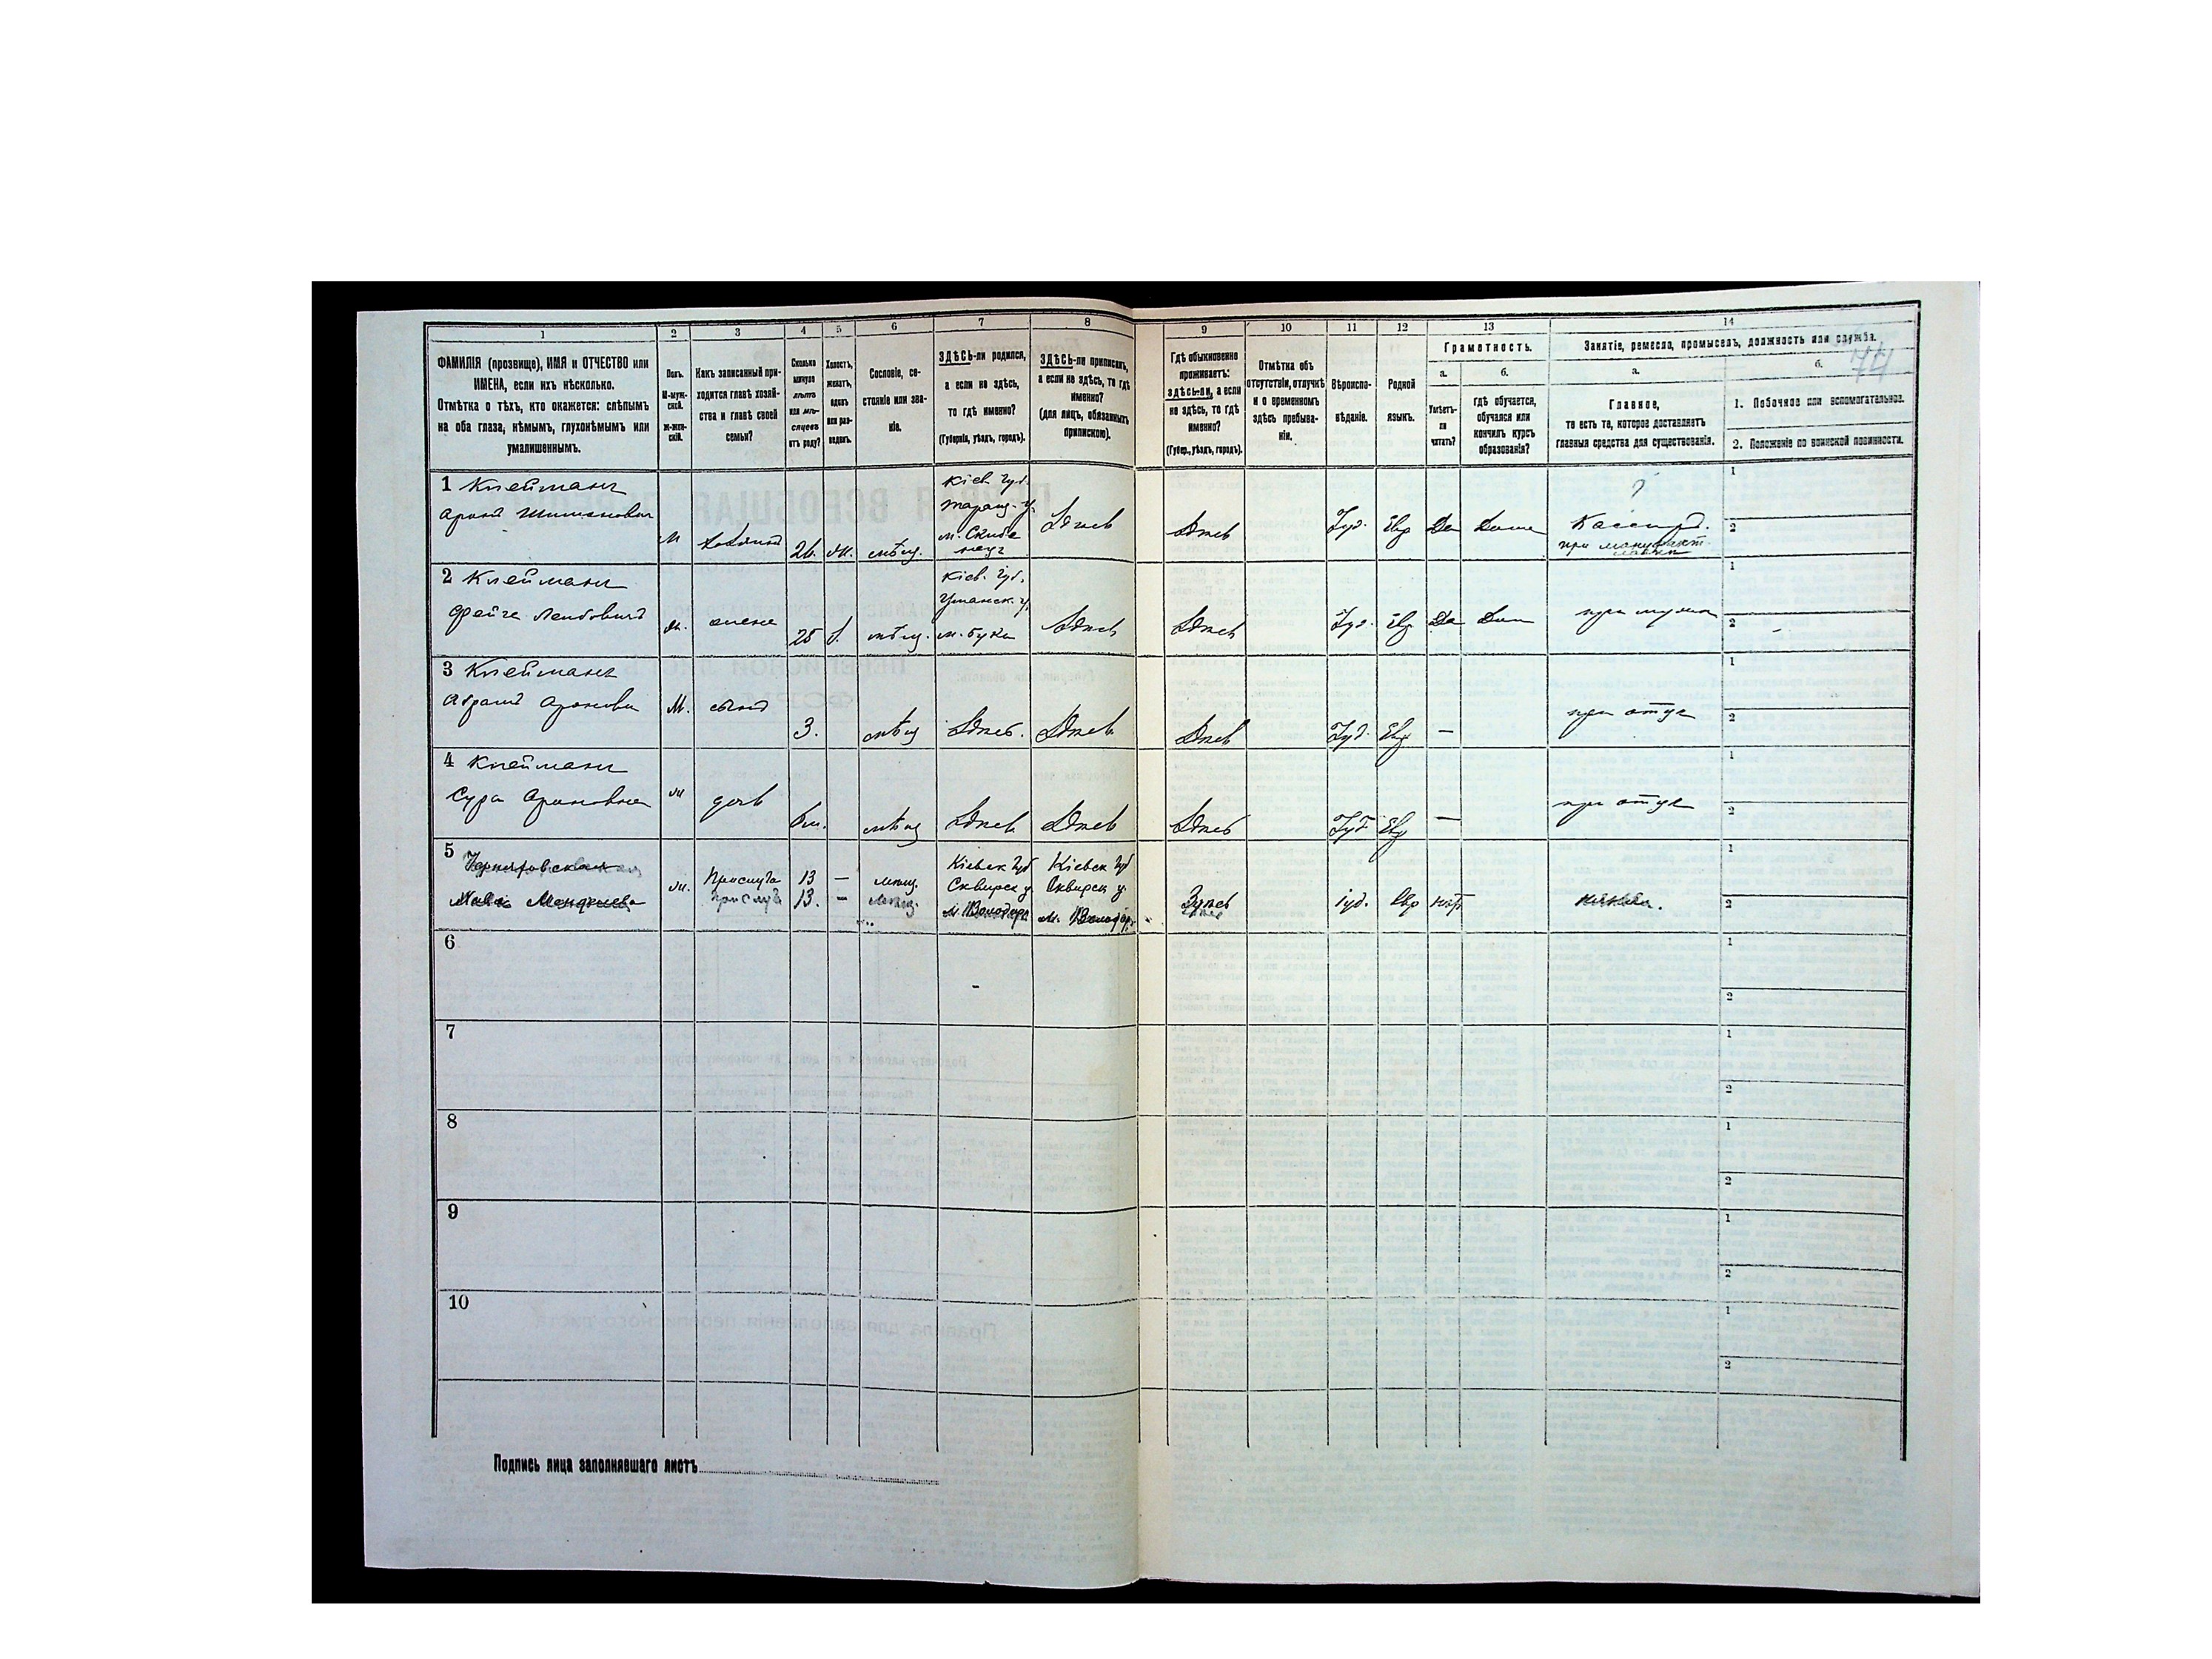 1 2 3 4 5 6 7 8 9 10 11 12 13 14
ФАМИЛІЯ (прозвище), ИМЯ и ОТЧЕСТВО или
ИМЕНА, если ихъ нѣсколько.
Отмѣтка о тѣхъ, кто окажется: слѣпымъ
на оба глаза, нѣмымъ, глухонѣмымъ или
умалишеннымъ.
Полъ.
М-муж-
ской.
Ж-жен-
скій.
Какъ записанный при-
ходится главѣ хозяй-
ства и главѣ своей
семьи?
Сколько
минуло
лѣтъ
или мѣ-
сяцевъ
отъ роду?
Холостъ,
женатъ,
вдовъ
или раз-
веденъ.
Сословіе, со-
стояніе или зва-
ніе.
ЗДѢСЬ-ли родился,
а если не здѣсь,
то гдѣ именно?
(Губернія, уѣздъ, городъ).
ЗДѢСЬ-ли приписанъ,
а если не здѣсь, то гдѣ
именно?
(для лицъ, обязанныхъ
припискою).
Гдѣ обыкновенно
проживаетъ:
здѣсь-ли, а если
не здѣсь, то гдѣ
именно?
(Губер., уѣздъ, городъ).
Отмѣтка объ
отсутствіи, отлучкѣ
и о временномъ
здѣсь пребыва-
ніи.
Вѣроиспо-
вѣданіе.
Родной
языкъ.
Грамотность.
а.
Умѣетъ-
ли
читать?
б.
гдѣ обучается,
обучался или
кончилъ курсъ
образованія?
Занятіе, ремесло, промыселъ, должность или служба.
74
а.
Главное,
то есть то, которое доставляетъ
главныя средства для существованія.
б.
1. Побочное или вспомогательное.
2. Положеніе по воинской повинности.
1 Клейманъ
Аронъ Шимонович
м хозяинъ 26. мѣщ.
Кіев. губ.
Таращ. у.
м. Скибе
Здѣсь Здѣсь Іуд. Евр Да Дома
?
Кассиръ.
при мануфакт.
1
2
2 Клейманъ
Фейга Лейбовна
ж. жена 25 мѣщ.
Кіев. губ.
Уманск. у.
м. Бука
Здѣсь Здѣсь Іуд. Евр Да Дома при мужѣ
1
2
3 Клейманъ
Абрамъ Аронови
М. сынъ 3. мѣщ Здѣсь. Здѣсь Здѣсь Іуд. Евр — при отцѣ
1
2
4 Клейманъ
Сура Ароновна
ж дочь 6м. мѣщ Здѣсь Здѣсь Здѣсь Іуд. Евр — при отцѣ
1
2
5
ж. Прислуга 13 — мѣщ.
Прислуга 13. — мѣщ.
Кіевск губ
Сквирск у.
м. Володарк
Кіевск губ
Сквирск у.
м. Володар
Здѣсь іуд. Евр
1
2
6
1
2
7
1
2
8
1
2
9
1
2
10
1
2
Подпись лица заполнявшаго листъ